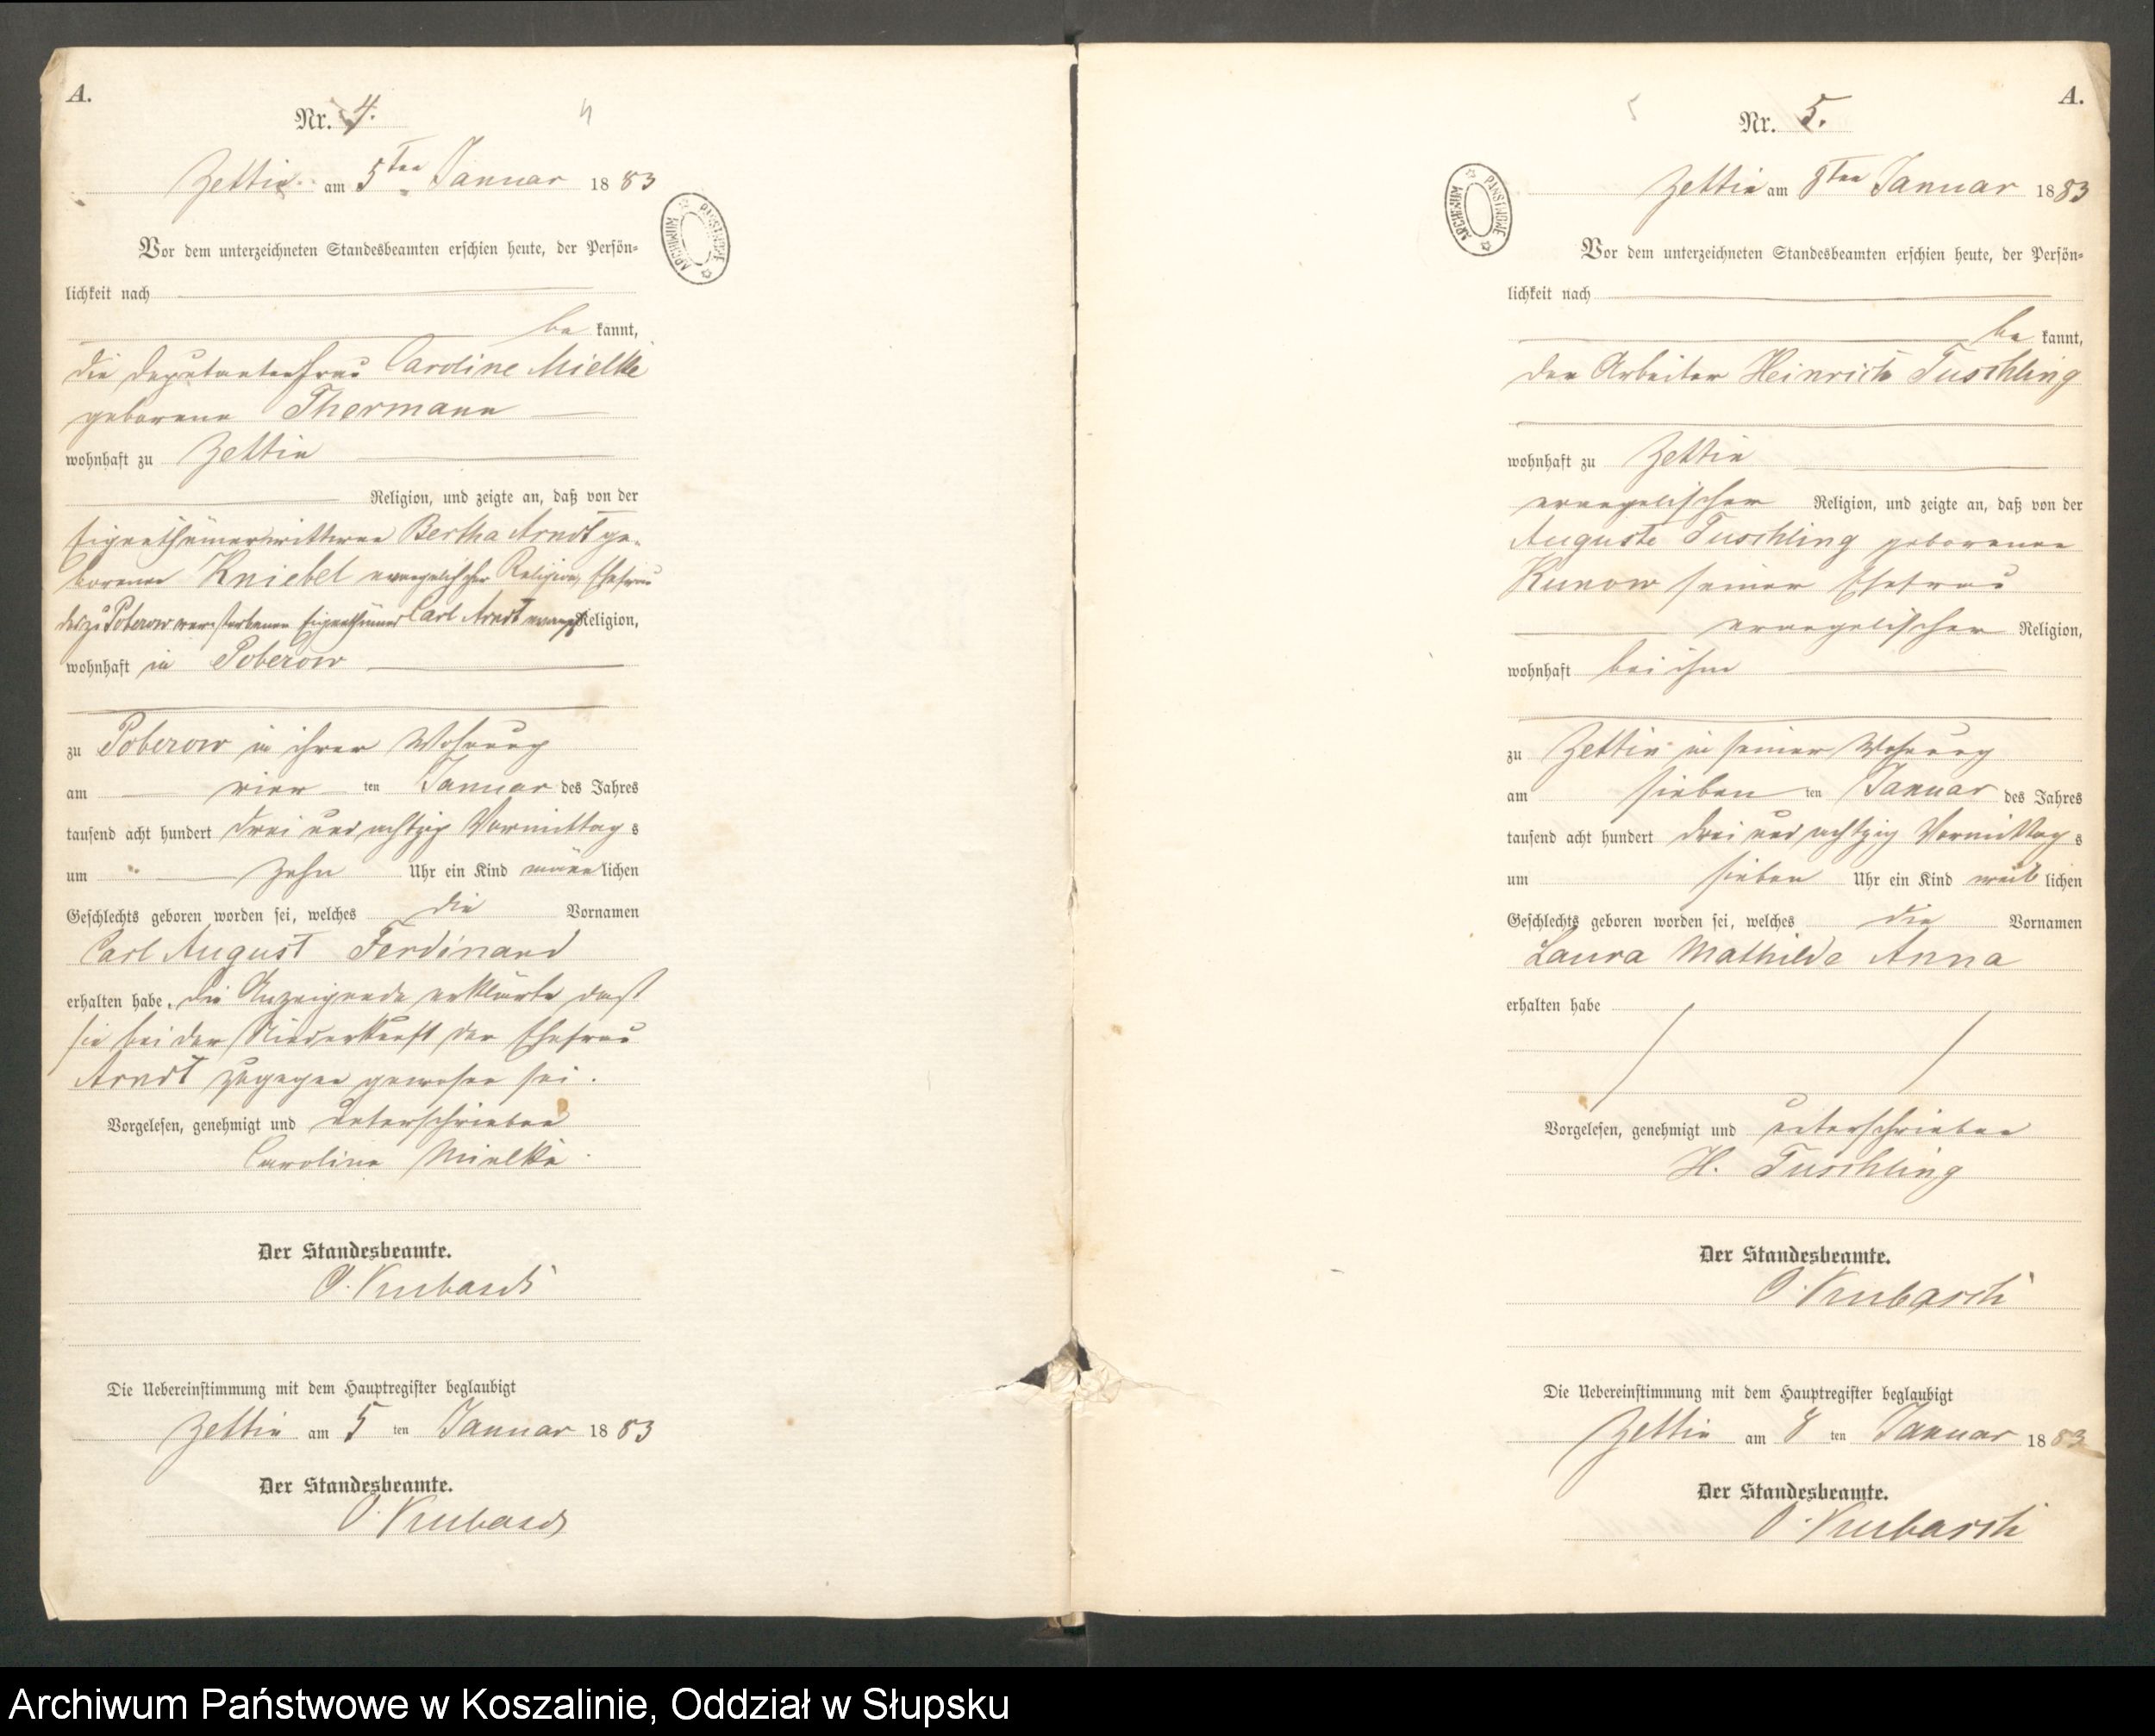 A.
Nr. 4.
4
Zettin am 5ten Januar 1883
ARCHIWUM PAŃSTWOWE
Vor dem unterzeichneten Standesbeamten erschien heute, der Persön-
lichkeit nach
be kannt,
die Deputantenfrau Caroline Mielke
geborene Thormann
wohnhaft zu Zettin
Religion, und zeigte an, daß von der
Eigenthümerwittwe Bertha Arndt ge-
borenen Kniebel evangelischer Religion, Ehefrau
des zu Poberow verstorbenen Eigenthümers Carl Arndt evang. Religion,
wohnhaft in Poberow
zu Poberow in ihrer Wohnung
am vier ten Januar des Jahres
tausend acht hundert drei und achtzig Vormittag s
um zehn Uhr ein Kind männlichen
Geschlechts geboren worden sei, welches die Vornamen
Carl August Ferdinand
erhalten habe. Die Anzeigende erklärte dast
sie bei der Niederkunft der Ehefrau
Arndt zugegen gewesen sei.
Vorgelesen, genehmigt und unterschrieben
Caroline Mielke
Der Standesbeamte.
O. Kubasch
Die Uebereinstimmung mit dem Hauptregister beglaubigt
Zettin am 5 ten Januar 1883
Der Standesbeamte.
O. Kubasch
A.
5
Nr. 5.
Zettin am 8ten Januar 1883
ARCHIWUM PAŃSTWOWE
Vor dem unterzeichneten Standesbeamten erschien heute, der Persön-
lichkeit nach
be kannt,
der Arbeiter Heinrich Tuschling
wohnhaft zu Zettin
evangelischer Religion, und zeigte an, daß von der
Auguste Tuschling geborenen
Kunow seiner Ehefrau
evangelischer Religion,
wohnhaft bei ihm
zu Zettin in seiner Wohnung
am sieben ten Januar des Jahres
tausend acht hundert drei und achtzig Vormittag s
um sieben Uhr ein Kind weib lichen
Geschlechts geboren worden sei, welches die Vornamen
Laura Mathilde Anna
erhalten habe
Vorgelesen, genehmigt und unterschrieben
H. Tuschling
Der Standesbeamte.
O. Kubasch
Die Uebereinstimmung mit dem Hauptregister beglaubigt
Zettin am 8 ten Januar 1883
Der Standesbeamte.
O. Kubasch
Archiwum Państwowe w Koszalinie, Oddział w Słupsku